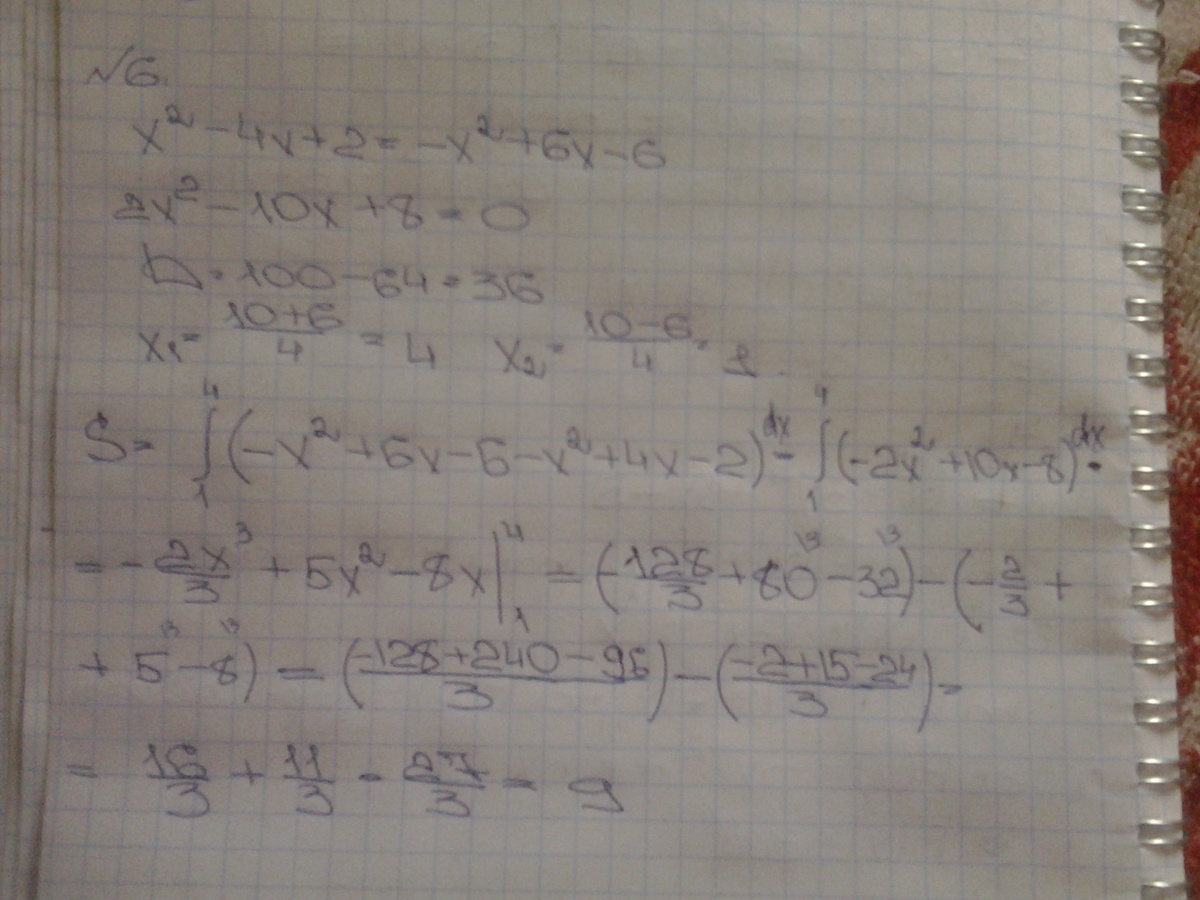 √6.
x² - 4x + 2 = -x² + 6x - 6
2x² - 10x + 8 = 0
D = 100 - 64 = 36
x₁ = (10+6)/4 = 4 x₂ = (10-6)/4 = 1.
S = ∫₁⁴ (-x² + 6x - 6 - x² + 4x - 2)dx = ∫₁⁴ (-2x² + 10x - 8)dx =
= -2x³/3 + 5x² - 8x |₁⁴ = (-128/3 + 80³ - 32³) - (-2/3 +
+ 5³ - 8³) = ((-128+240-96)/3) - ((-2+15-24)/3) =
= 16/3 + 11/3 = 27/3 = 9